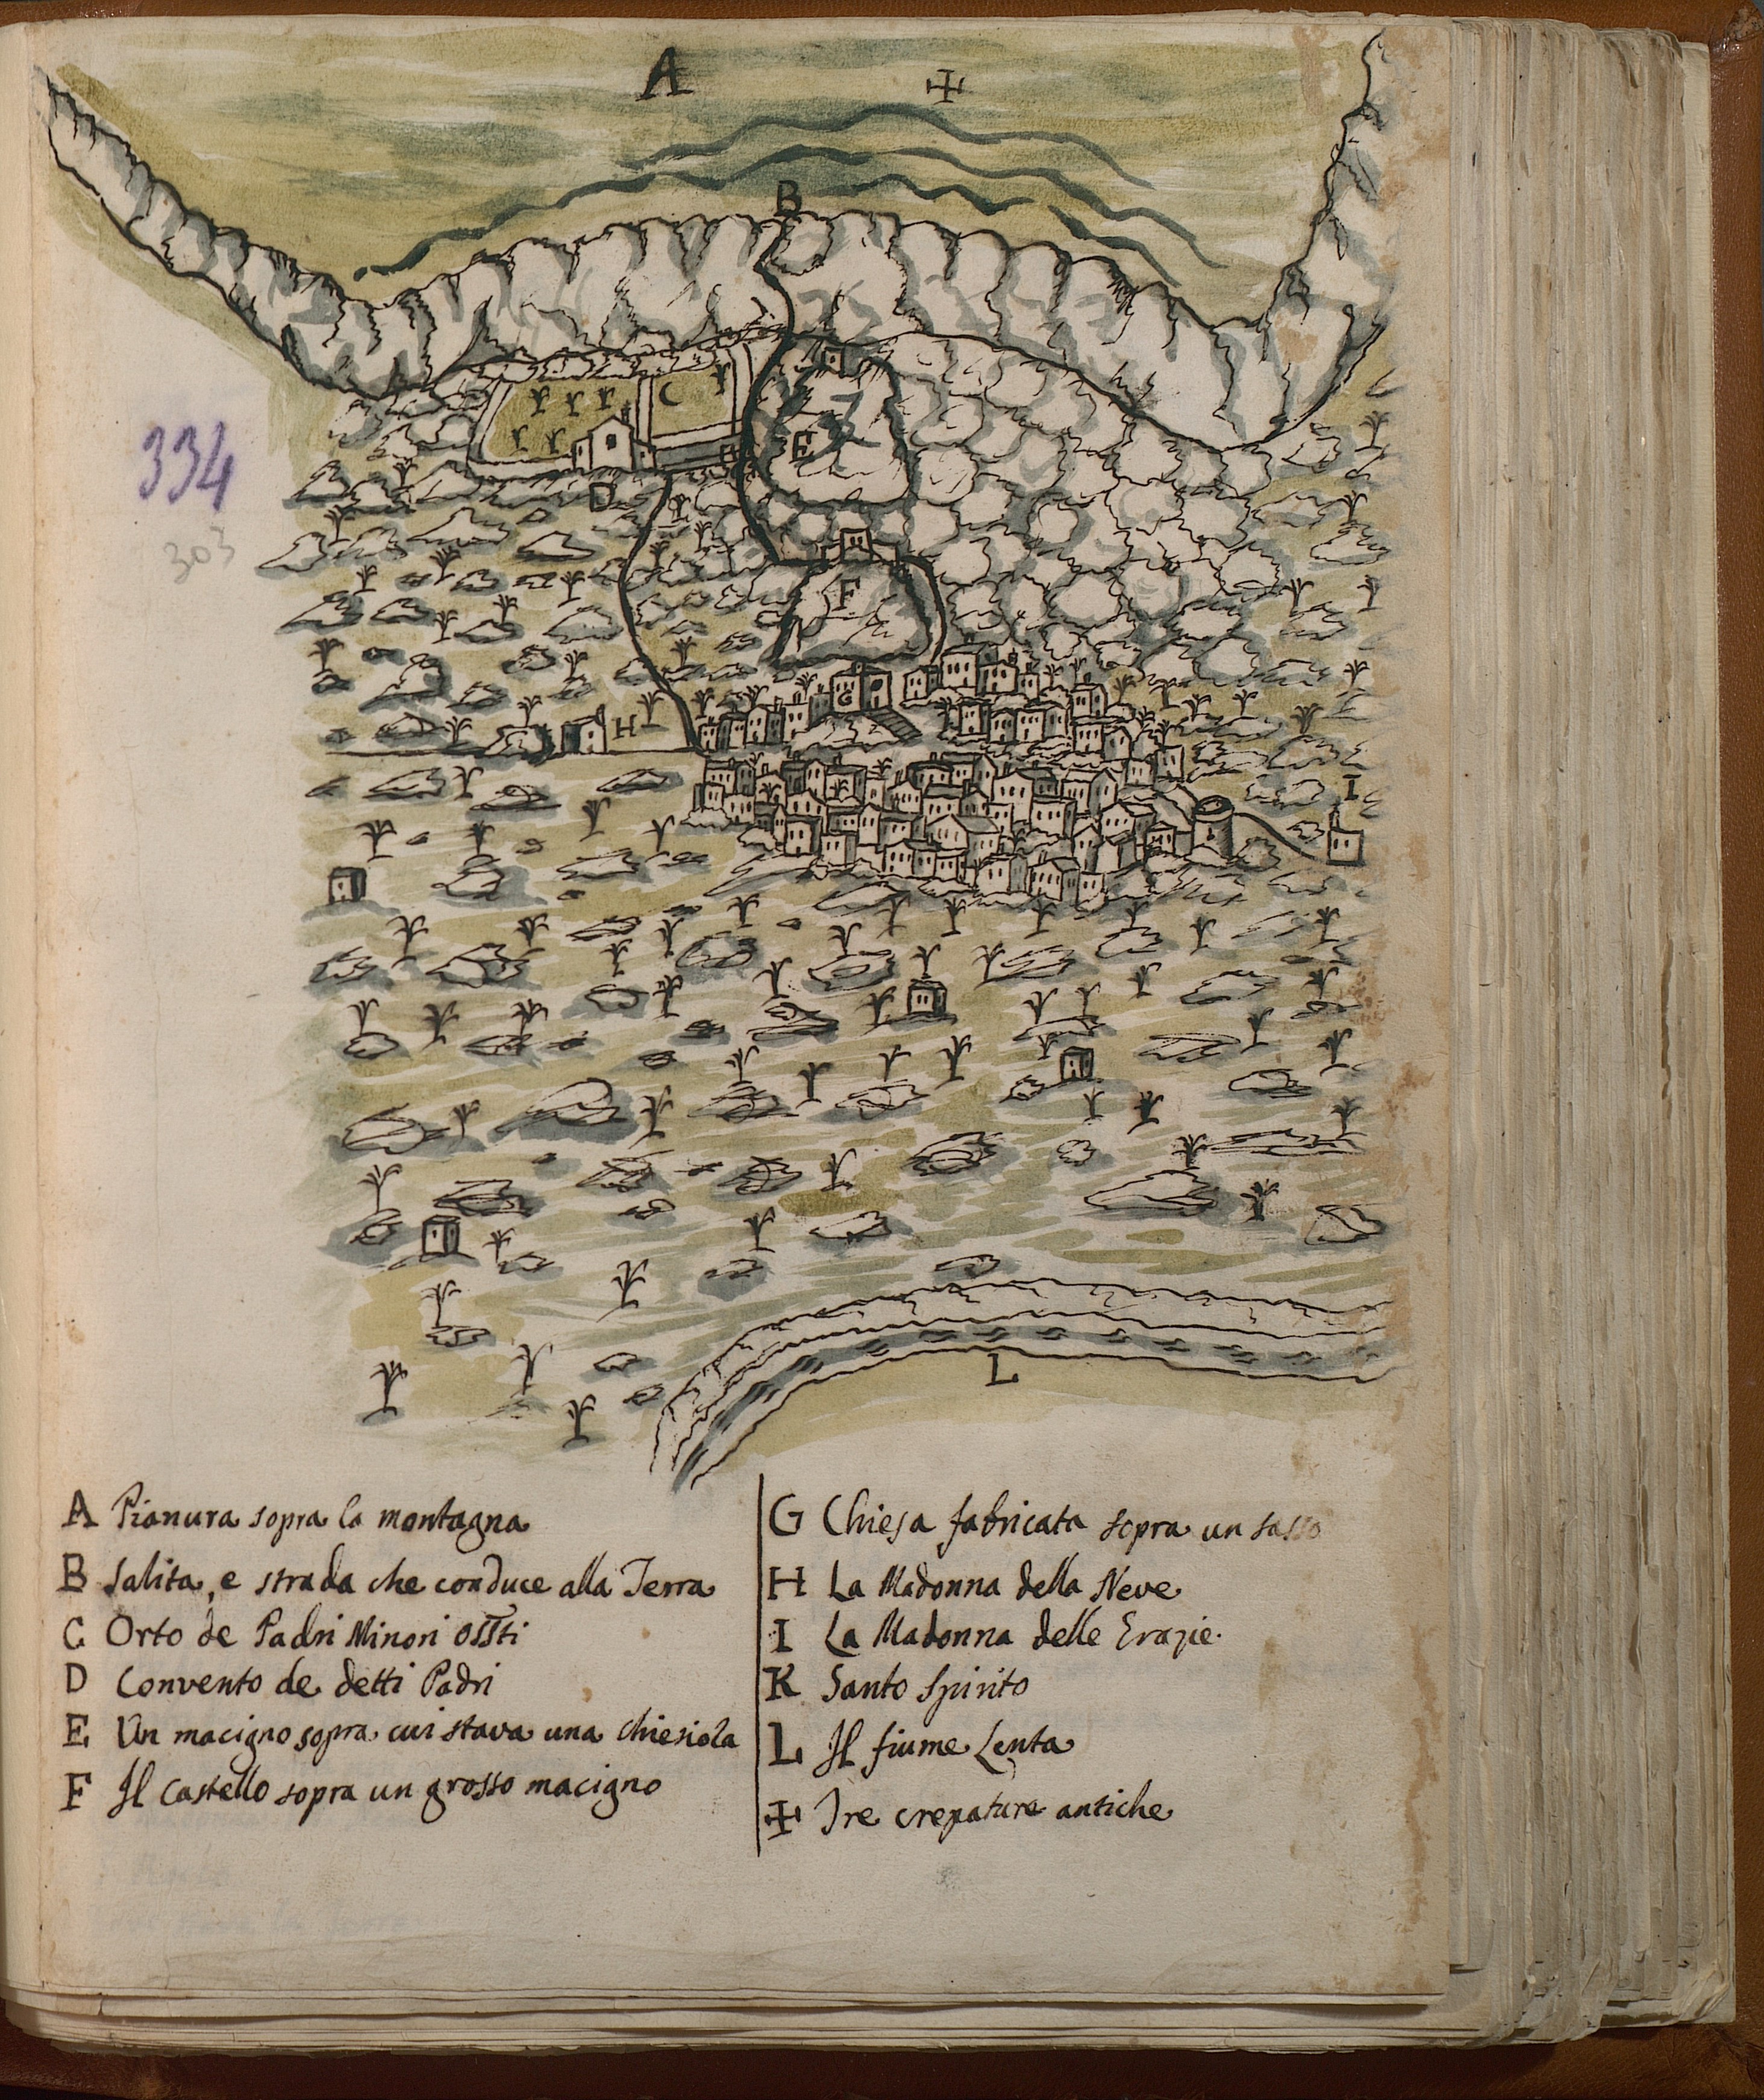 A
✠
B
C
334
E
D
303
F
G
H
I
L
A Pianura sopra la montagna
B Salita, e strada che conduce alla Terra
C Orto de Padri Minori Ossti
D Convento de detti Padri
E Un macigno sopra cui stava una chiesiola
F Il Castello sopra un grosso macigno
G Chiesa fabricata sopra un sasso
H La Madonna della Neve
I La Madonna delle Grazie.
K Santo Spirito
L Il fiume Lenta
✠ Tre crepature antiche